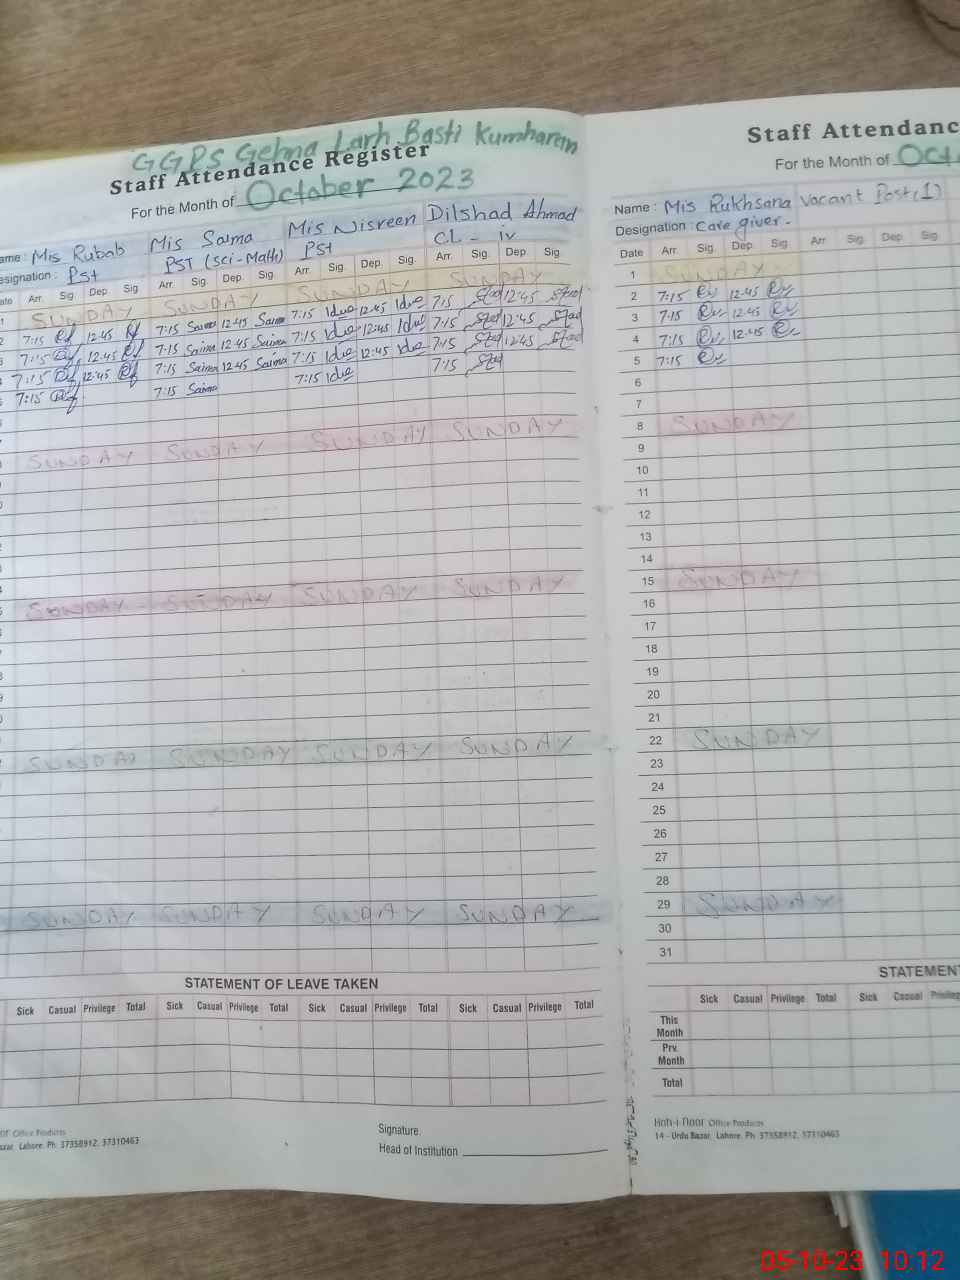 GGPS Gehna Larh Basti Kumharan
Staff Attendance Register
For the Month of October 2023
ame : Mis Rubab Mis Saima Mis Nisreen Dilshad Ahmad
esignation : Pst PST (Sci-Math) Pst CL - iv
ate Arr. Sig. Dep. Sig. Arr. Sig. Dep. Sig. Arr. Sig. Dep. Sig. Arr. Sig. Dep. Sig.
1 SUNDAY SUNDAY SUNDAY SUNDAY
2 7:15 12:45 7:15 Saima 12:45 Saima 7:15 12:45 7:15 12:45
3 7:15 12:45 7:15 Saima 12:45 Saima 7:15 12:45 7:15 12:45
7:15 12:45 7:15 Saima 12:45 Saima 7:15 12:45 7:15 12:45
7:15 7:15 Saima 7:15 7:15
SUNDAY SUNDAY SUNDAY SUNDAY
SUNDAY SUNDAY SUNDAY SUNDAY
SUNDAY SUNDAY SUNDAY SUNDAY
SUNDAY SUNDAY SUNDAY SUNDAY
STATEMENT OF LEAVE TAKEN
Sick Casual Privilege Total Sick Casual Privilege Total Sick Casual Privilege Total Sick Casual Privilege Total
Office Products
zar, Lahore. Ph: 37358912, 37310463
Signature.
Head of Institution
Staff Attendanc
For the Month of Oct
Name : Mis Rukhsana Vacant Post (1)
Designation : Care giver -
Date Arr. Sig. Dep. Sig. Arr. Sig. Dep. Sig.
1 SUNDAY
2 7:15 12:45
3 7:15 12:45
4 7:15 12:45
5 7:15
6
7
8 SUNDAY
9
10
11
12
13
14
15 SUNDAY
16
17
18
19
20
21
22 SUNDAY
23
24
25
26
27
28
29 SUNDAY
30
31
STATEMENT
Sick Casual Privilege Total Sick Casual Privileg
This Month
Prv. Month
Total
Office Products
14 - Urdu Bazar, Lahore. Ph: 37358912, 37310463
05-10-23 10:12